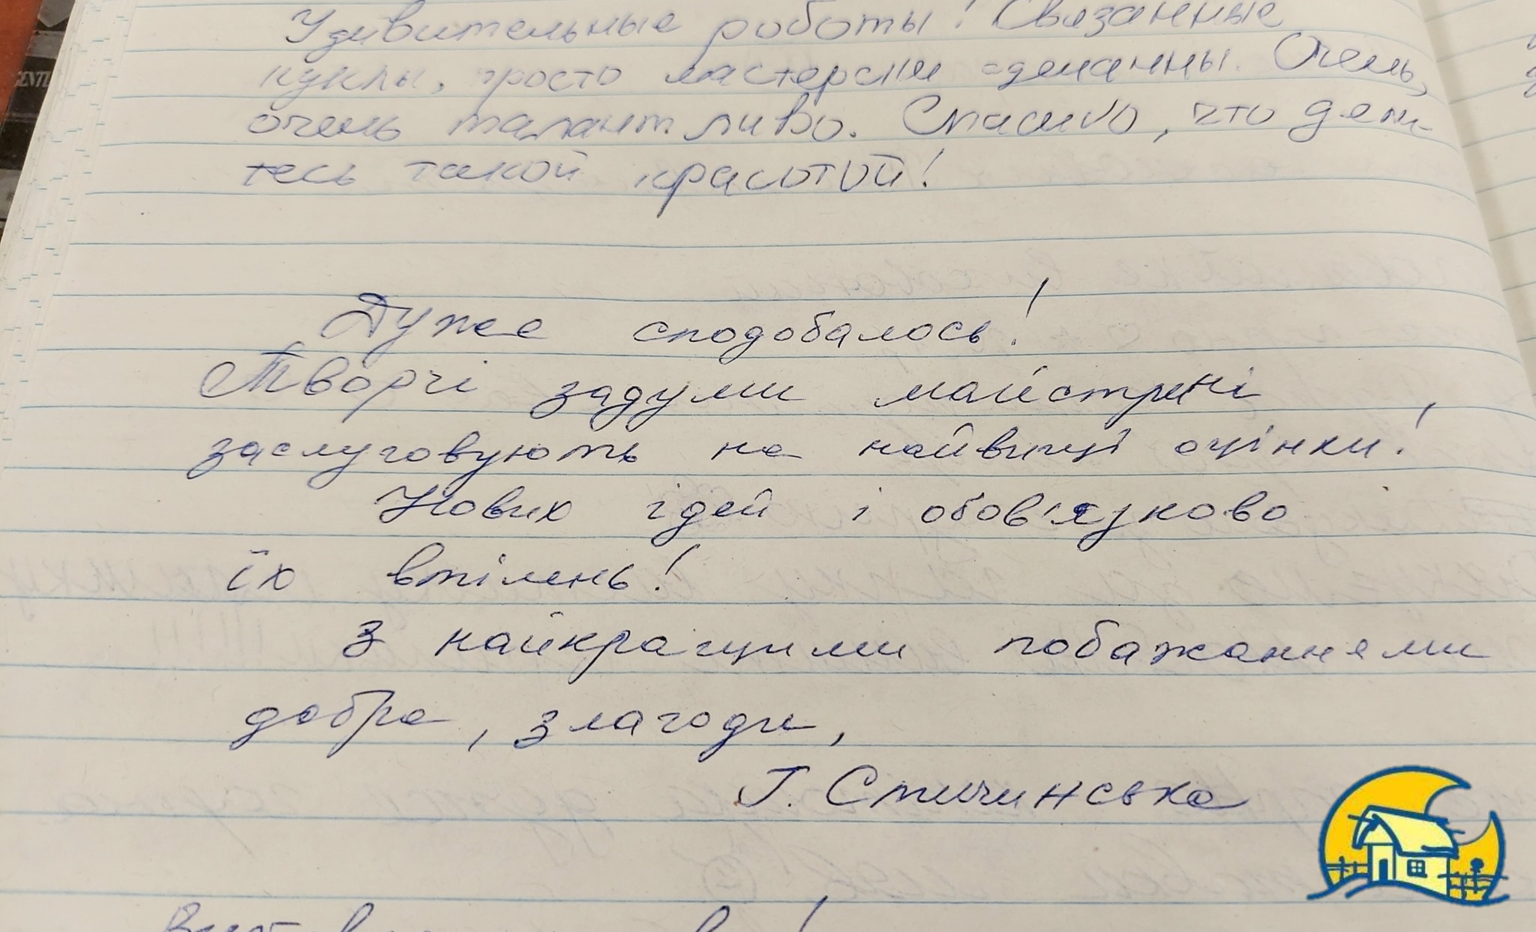 Удивительные работы! Связанные
куклы, просто мастерски сделанны. Очень,
очень талантливо. Спасибо, что дели-
тесь такой красотой!
Дуже сподобалось!
Творчі задуми майстрині
заслуговують на найвищі оцінки!
Нових ідей і обов'язково
їх втілень!
З найкращими побажаннями
добра, злагоди,
Г. Стичинська